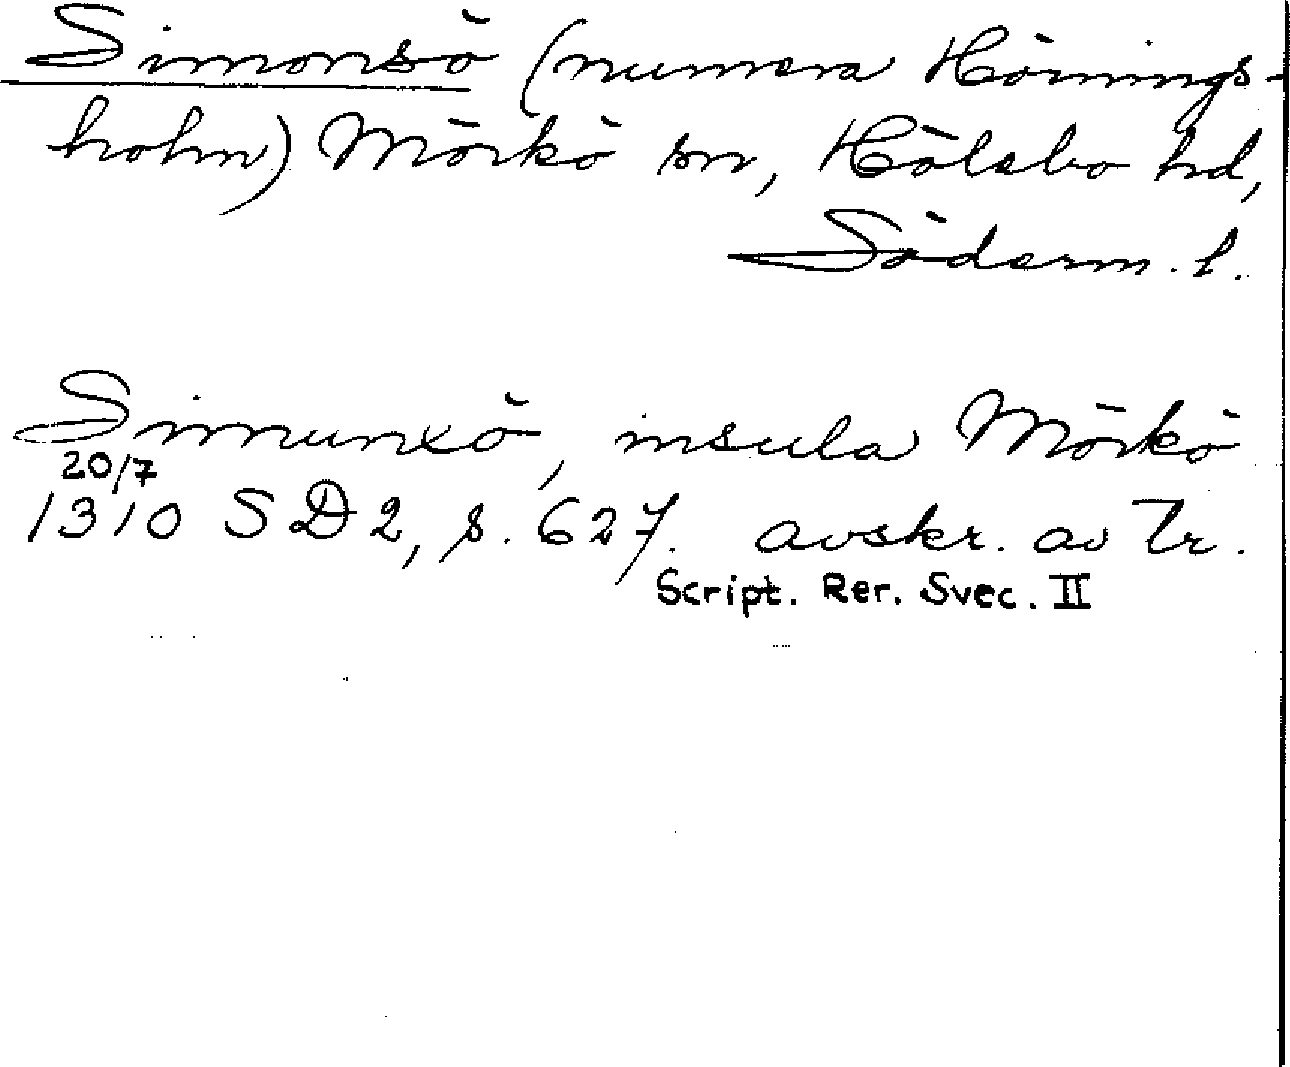 Simonsö (numera Hörnings-
holm) Mörkö sn, Hölebo hd,
Söderm. l.
Simunxö, insula Mörkö
20/7
1310 SD 2, s. 627. avskr. av Tr.
Script. Rer. Svec. II